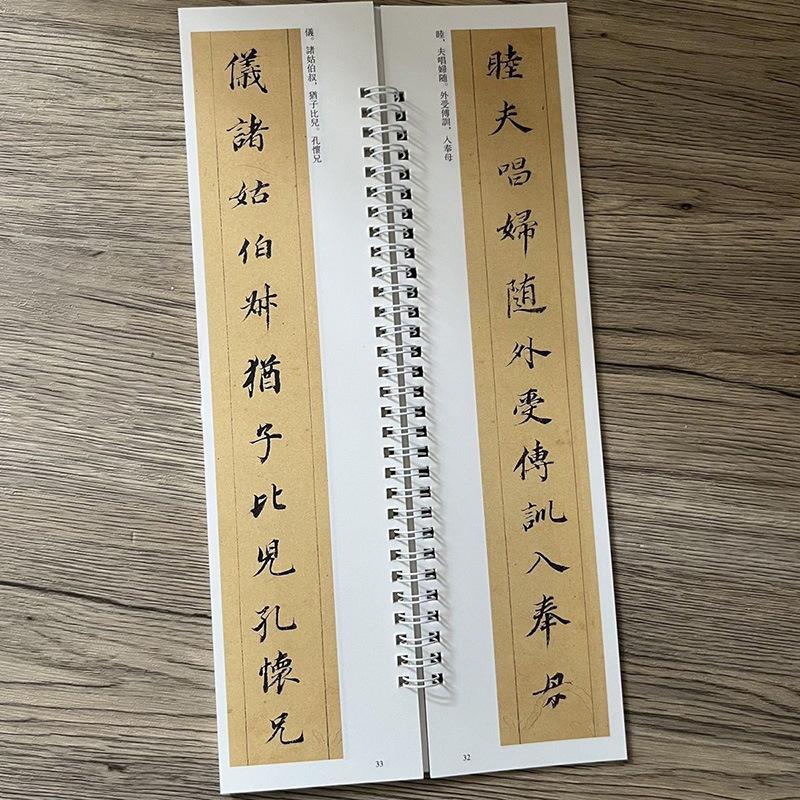 睦夫唱婦随外受傅訓入奉母
睦，夫唱婦随。外受傅訓，入奉母
32
儀。諸姑伯叔，猶子比兒。孔懷兄
儀諸姑伯叔猶子比兒孔懷兄
33